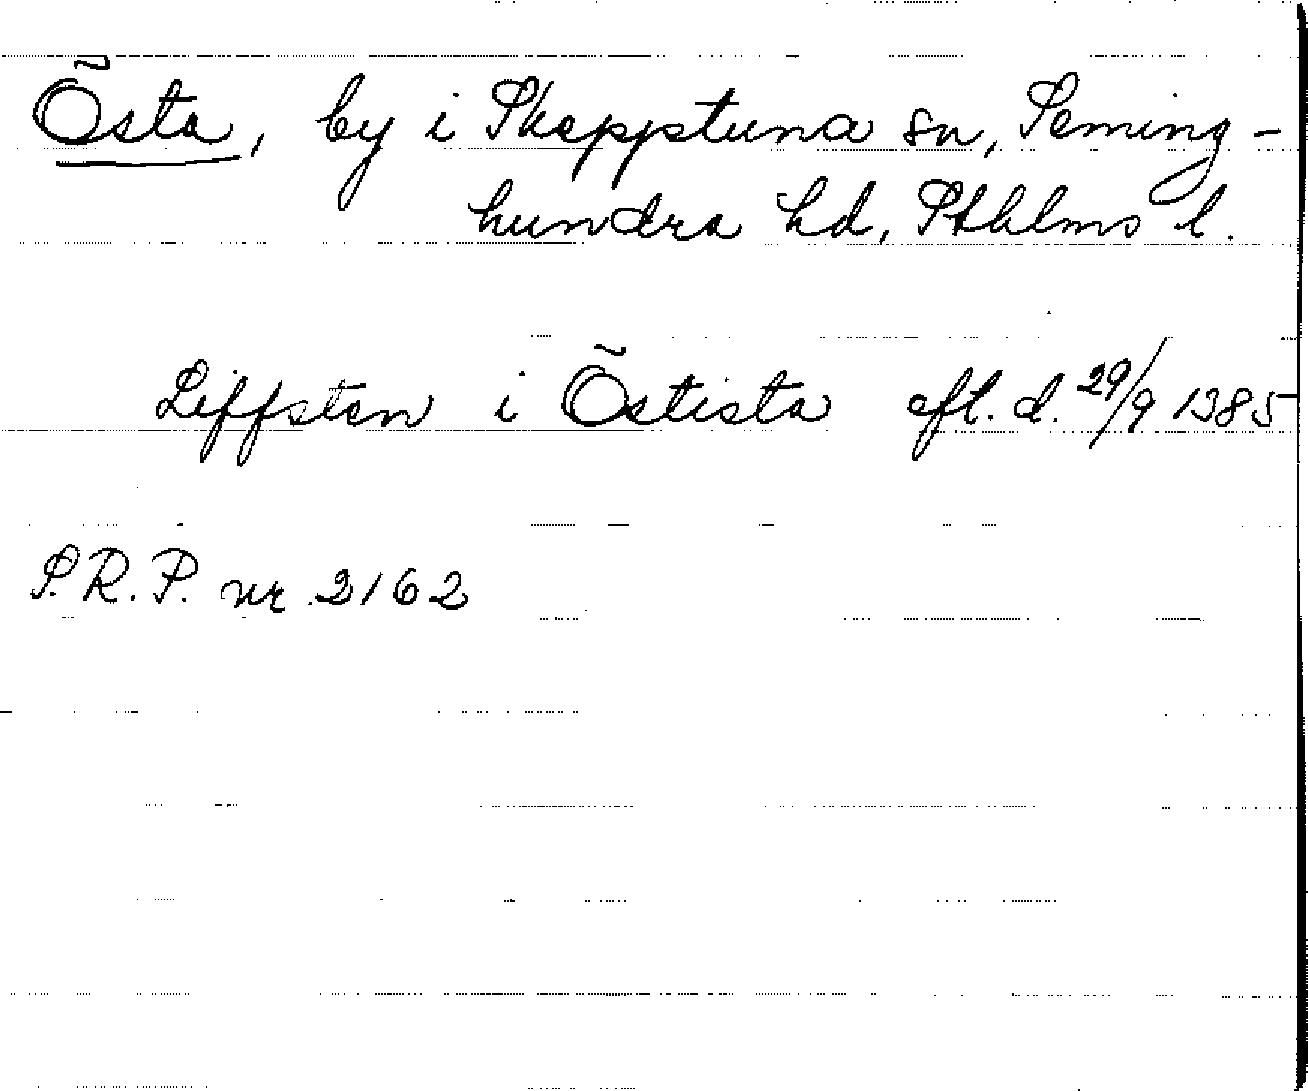 Östa, by i Skepptuna sn, Seming-
hundra hd, Sthlms l.
Leffsten i Östista afl. d. 29/9 1385
S.R.P. nr. 2162